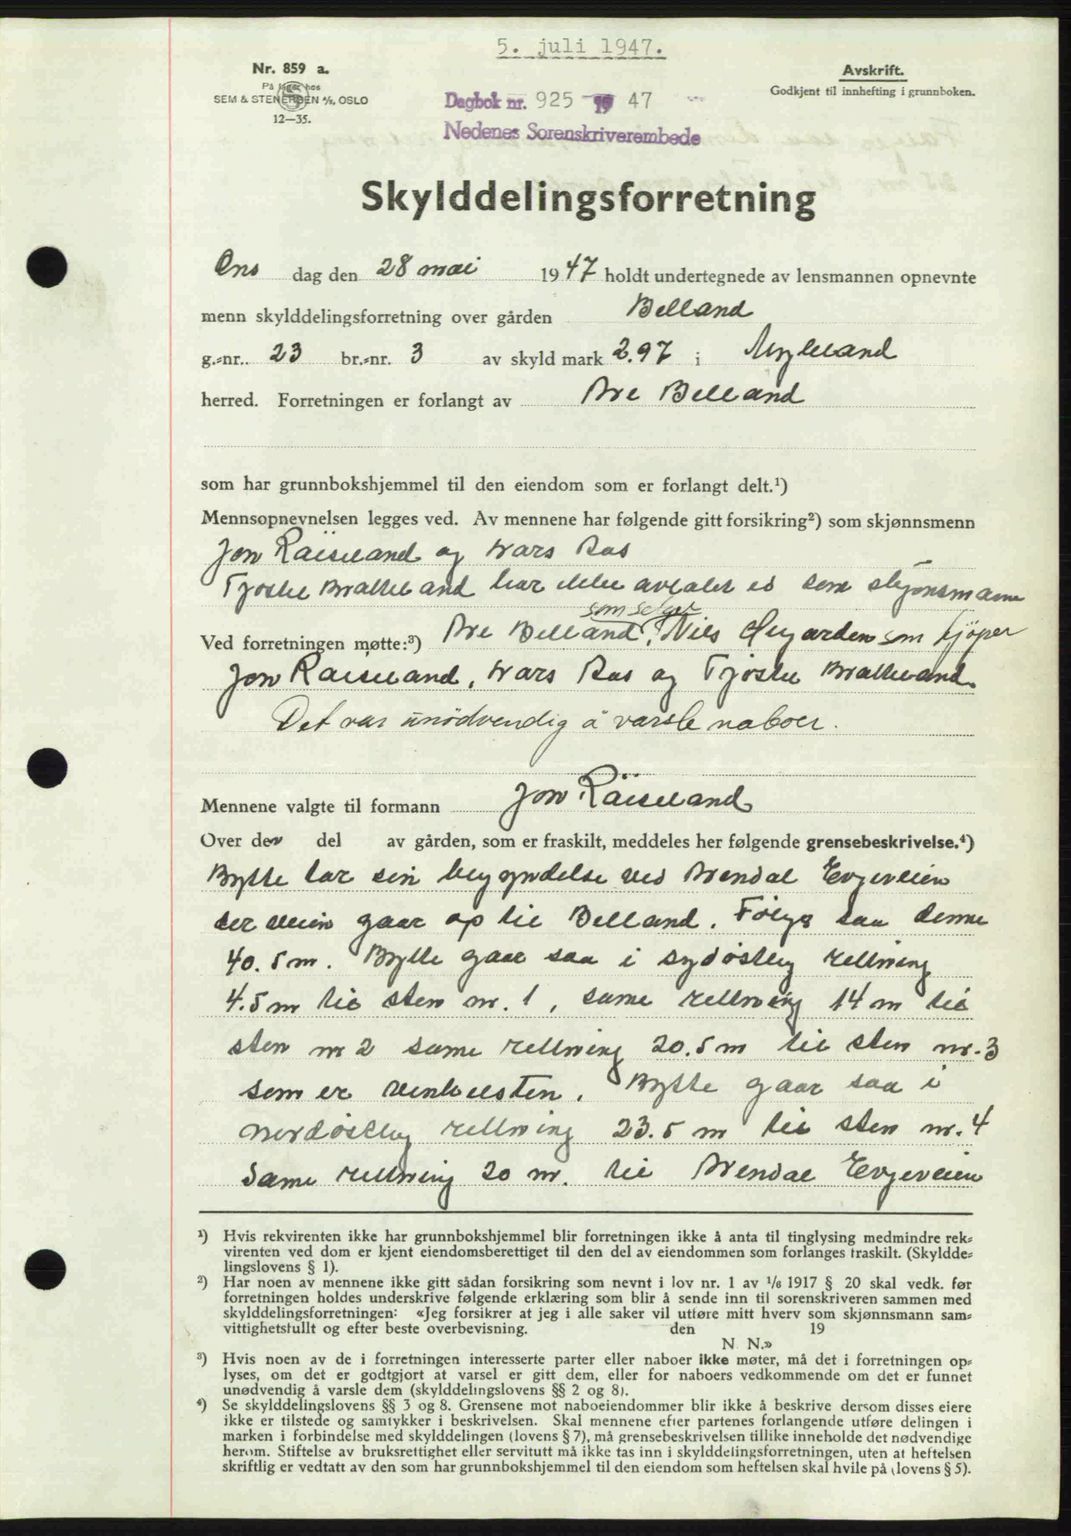 5. juli 1947.
Nr. 859 a.
På lager hos
SEM & STENERSEN A/S, OSLO
12—35.
Dagbok nr. 925 19 47
Nedenes Sorenskriverembede
Avskrift.
Godkjent til innhefting i grunnboken.
Skylddelingsforretning
Ons dag den 28 mai 1947 holdt undertegnede av lensmannen opnevnte
menn skylddelingsforretning over gården Belland
g.-nr. 23 br.-nr. 3 av skyld mark 2.97 i Mykland
herred. Forretningen er forlangt av Are Belland
som har grunnbokshjemmel til den eiendom som er forlangt delt.¹)
Mennsopnevnelsen legges ved. Av mennene har følgende gitt forsikring²) som skjønnsmenn
Jon Räiseland og Lars Aas
Tjøstel har ikke avlakt ed som skjønsmann
som selger
Ved forretningen møtte:³) Are Belland, Nils som kjöper
Jon Raiseland, Lars Aas og
Det var unødvendig å varsle naboer.
Mennene valgte til formann Jon Räiseland
Over den del av gården, som er fraskilt, meddeles her følgende grensebeskrivelse.⁴)
Bytte tar sin begyndelse ved Arendal Evjeveien
der veien gaar op til Belland. Følger saa denne
40.5 m. Bytte gaar saa i sydøstlig retning
4.5 m til sten nr. 1, same retning 14 m til
sten nr 2 same retning 20.5 m til sten nr. 3
som er vinkelsten. Bytte gaar saa i
nordøstlig retning 23.5 m til sten nr. 4
same retning 20 m. til Arendal Evjeveien
¹) Hvis rekvirenten ikke har grunnbokshjemmel blir forretningen ikke å anta til tinglysing medmindre rek-
virenten ved dom er kjent eiendomsberettiget til den del av eiendommen som forlanges fraskilt. (Skyldde-
lingslovens § 1).
²) Har noen av mennene ikke gitt sådan forsikring som nevnt i lov nr. 1 av 1/6 1917 § 20 skal vedk. før
forretningen holdes underskrive følgende erklæring som blir å sende inn til sorenskriveren sammen med
skylddelingsforretningen: «Jeg forsikrer at jeg i alle saker vil utføre mitt hverv som skjønnsmann sam-
vittighetsfullt og efter beste overbevisning. den 19
N. N.»
³) Hvis noen av de i forretningen interesserte parter eller naboer ikke møter, må det i forretningen op-
lyses, om det er godtgjort at varsel er gitt dem, eller for naboers vedkommende om det er funnet
unødvendig å varsle dem (skylddelingslovens §§ 2 og 8).
⁴) Se skylddelingslovens §§ 3 og 8. Grensene mot naboeiendommer blir ikke å beskrive dersom disses eiere
ikke er tilstede og samtykker i beskrivelsen. Skal mennene efter partenes forlangende utføre delingen i
marken i forbindelse med skylddelingen (lovens § 7), må grensebeskrivelsen tillike inneholde det nødvendige
herom. Stiftelse av bruksrettighet eller servitutt må ikke tas inn i skylddelingsforretningen, uten at heftelsen
skriftlig er vedtatt av den som har grunnbokshjemmel til den eiendom som heftelsen skal hvile på (lovens § 5).